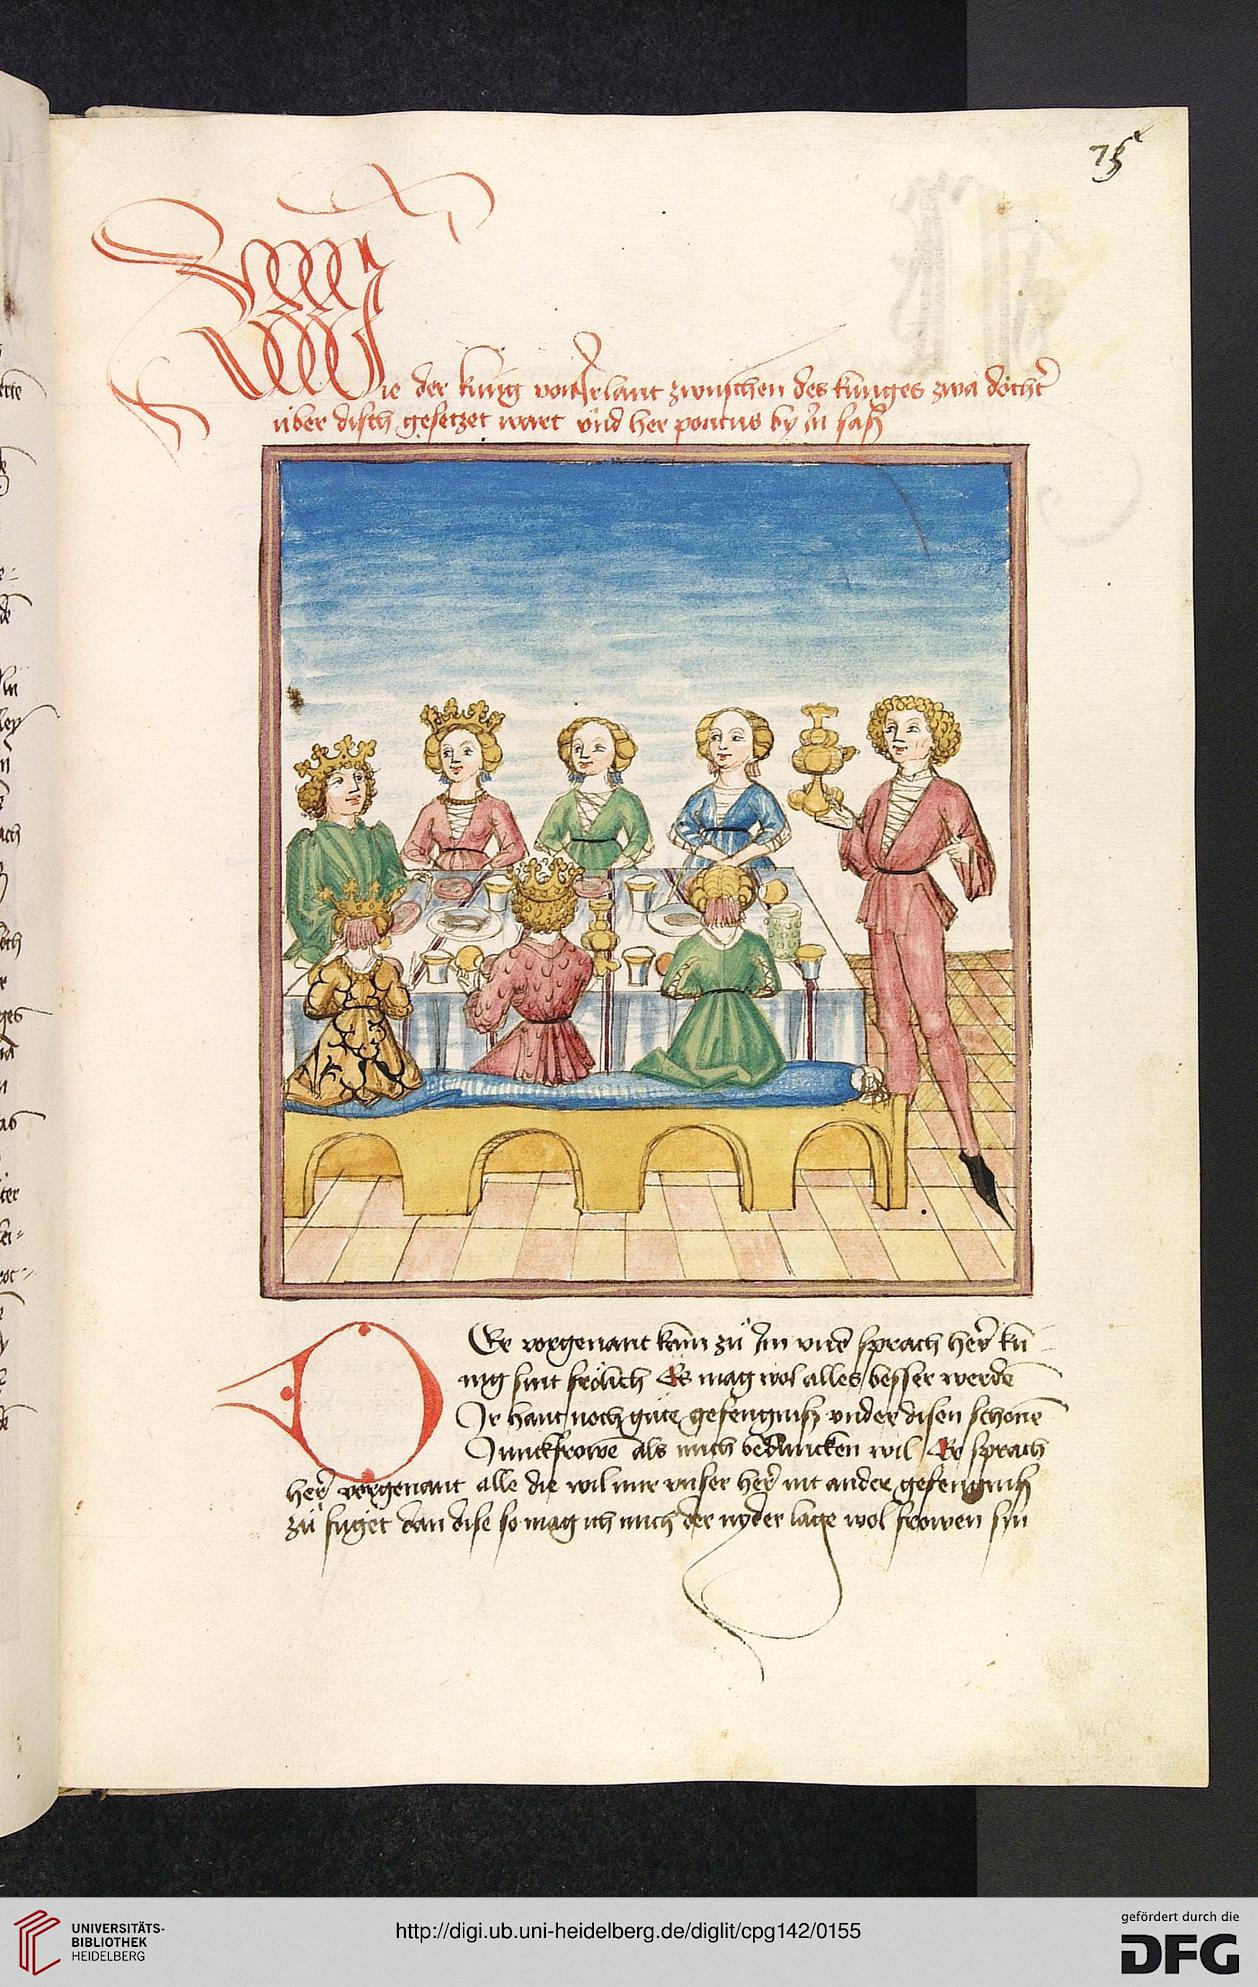 75
Wie der kunig von Irlant zwuschen des kuniges zwa dochter
uber disch gesetzet wart und her pontus by in saß
Der vorgenant kam zü im vnd sprach her kü-
nig sint frölich Es mag wol alles besser werden
Ir hant noch güte gefengniß vnder disen schonen
Junckfrowen als mich beduncken wil Er sprach
her vorgenant alle die wil mir vnser her nit ander gefengniß
zü füget dan dise so mag ich mich der nyder lage wol frowen sin
UNIVERSITÄTS-
BIBLIOTHEK
HEIDELBERG
http://digi.ub.uni-heidelberg.de/diglit/cpg142/0155
gefördert durch die
DFG